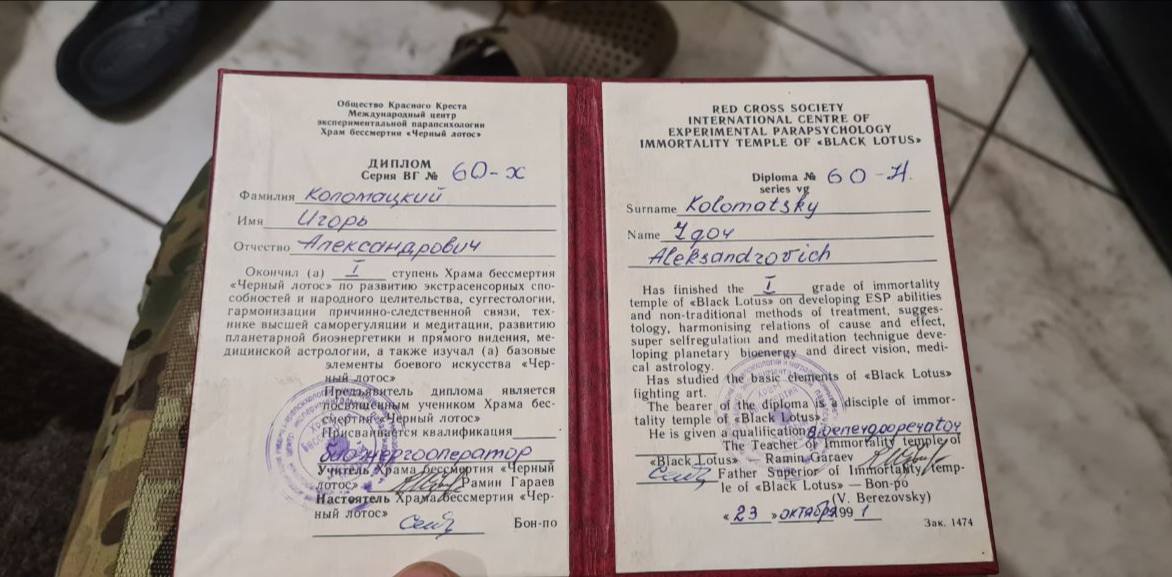 Общество Красного Креста
Международный центр
экспериментальной парапсихологии
Храм бессмертия «Черный лотос»
ДИПЛОМ
Серия ВГ № 60-х
Фамилия Коломацкий
Имя Игорь
Отчество Александрович
Окончил (а) I ступень Храма бессмертия
«Черный лотос» по развитию экстрасенсорных спо-
собностей и народного целительства, суггестологии,
гармонизации причинно-следственной связи, тех-
нике высшей саморегуляции и медитации, развитию
планетарной биоэнергетики и прямого видения, ме-
дицинской астрологии, а также изучал (а) базовые
элементы боевого искусства «Чер-
ный лотос»
Предъявитель диплома является
посвященным учеником Храма бес-
смертия «Черный лотос»
Присваивается квалификация
биоэнергооператор
Учитель Храма бессмертия «Черный
лотос» Рамин Гараев
Настоятель Храма бессмертия «Чер-
ный лотос»
Бон-по
RED CROSS SOCIETY
INTERNATIONAL CENTRE OF
EXPERIMENTAL PARAPSYCHOLOGY
IMMORTALITY TEMPLE OF «BLACK LOTUS»
Diploma № 60-H.
series vg
Surname Kolomatsky
Name Igor
Aleksandrovich
Has finished the I grade of immortality
temple of «Black Lotus» on developing ESP abilities
and non-traditional methods of treatment, sugges-
tology, harmonising relations of cause and effect,
super selfregulation and meditation technigue deve-
loping planetary bioenergy and direct vision, medi-
cal astrology.
Has studied the basic elements of «Black Lotus»
fighting art.
The bearer of the diploma is a disciple of immor-
tality temple of «Black Lotus».
He is given a qualification
The Teacher of Immortality temple of
«Black Lotus» — Ramin Garaev
Father Superior of Immortality temp-
le of «Black Lotus» — Bon-po
(V. Berezovsky)
«23» октября 1991
Зак. 1474